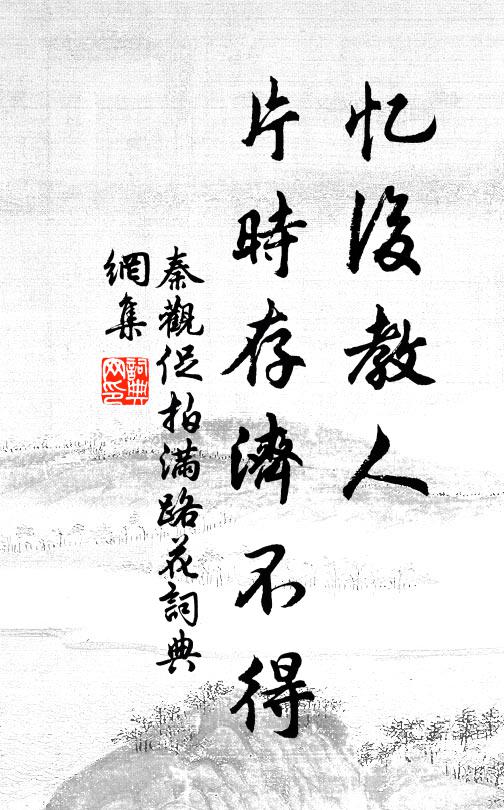 忆後教人
片時存濟不得
秦觀促拍满路花詞典
網集
詞典
网印